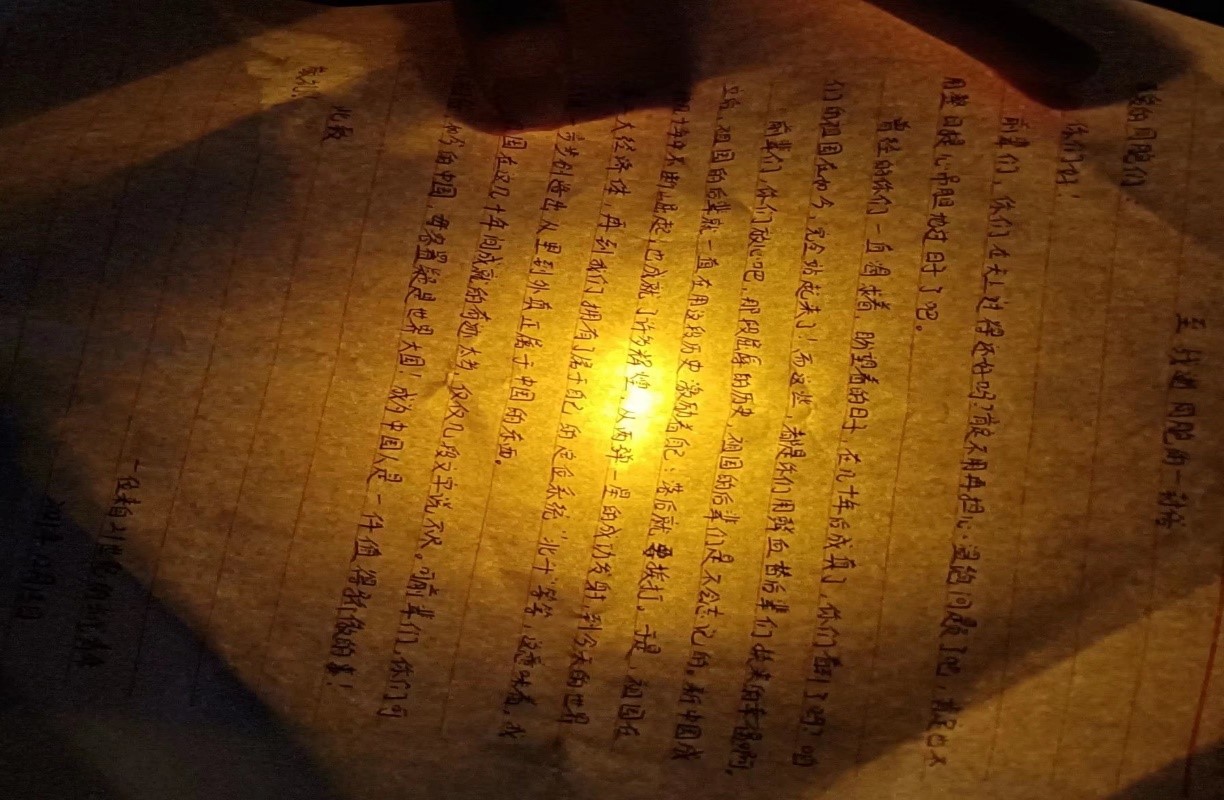 至战逝同胞的一封信
的同胞们:
你们好!
前辈们,你们在天上过得还好吗?肯定不用再担心温饱问题了吧,肯定也不
用整日提心吊胆地过日子了吧。
曾经的你们一直渴求着,盼望着的日子,在几十年后成真了,你们看到了吗?咱
们的祖国在如今,完全站起来了!而这些,都是你们用鲜血替后辈们换来的幸福啊。
前辈们,你们放心吧,那段屈辱的历史,祖国的后辈们是不会忘记的。新中国成
立后,祖国的后辈就一直在用这段历史激励着自己:落后就要挨打。于是,祖国在
几十年中不断崛起,也成就了许多辉煌,从两弹一星的成功发射,到今天的世界
大经济体,再到我们拥有了属于自己的定位系统"北斗"等等,这意味着,我
一步步创造出从里到外真正属于中国的东西。
国在这几十年间成就的奇迹太多,仅仅几段文字说不尽。可前辈们,你们了可
如今的中国,毋容置疑是世界大国!成为中国人是一件值得骄傲的事!
此致
敬礼!
一位来自21世纪的